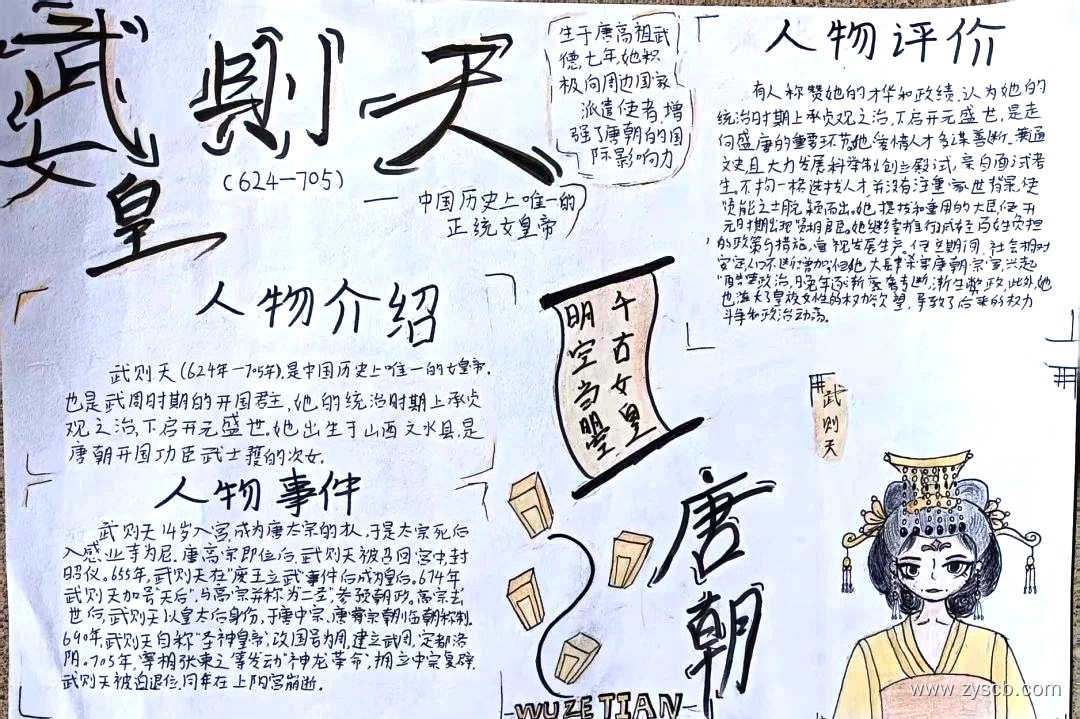 武则天
女皇
(624—705)
— 中国历史上唯一的
正统女皇帝
生于唐高祖武
德七年,她积
极向周边国家
派遣使者,增
强了唐朝的国
际影响力
人物评价
有人称赞她的才华和政绩,认为她的
统治时期上承贞观之治,下启开元盛世,是走
向盛唐的重要环节。她爱惜人才多谋善断,兼通
文史且大力发展科举制创立殿试,亲自面试考
生,不拘一格选拔人才并没有注重家世背景,使
贤能之士脱颖而出。她提拔和重用的大臣,使开
元时期出现。她继续推行减轻百姓负担
的政策与措施,重视发展生产。社会相对
安定,人口不断增加,但她大唐朝宗室,兴起
政治,晚年逐渐,渐生弊政,此外,她
也滋长了皇族女性的权力欲望,导致了后来的权力
斗争和政治动荡。
人物介绍
武则天(624年—705年),是中国历史上唯一的女皇帝,
也是武周时期的开国君主,她的统治时期上承贞
观之治,下启开元盛世。她出生于山西文水县,是
唐朝开国功臣武士彟的次女。
人物事件
武则天14岁入宫成为唐太宗的才人,于是太宗死后
入感业寺为尼。唐高宗即位后,武则天被召回宫中,封
昭仪。655年,武则天在“废王立武”事件后成为皇后。674年
武则天加号“天后”,与高宗并称为“二圣”,参预朝政。高宗去
世后,武则天以皇太后身份,于唐中宗、唐睿宗朝临朝称制。
690年,武则天自称“圣神皇帝”,改国号为周,建立武周,定都洛
阳。705年,宰相张柬之等发动“神龙革命”,拥立中宗复辟,
武则天被迫退位,同年在上阳宫崩逝。
千古女皇
明空当曌
唐朝
武则天
WUZETIAN
www.zyscb.com